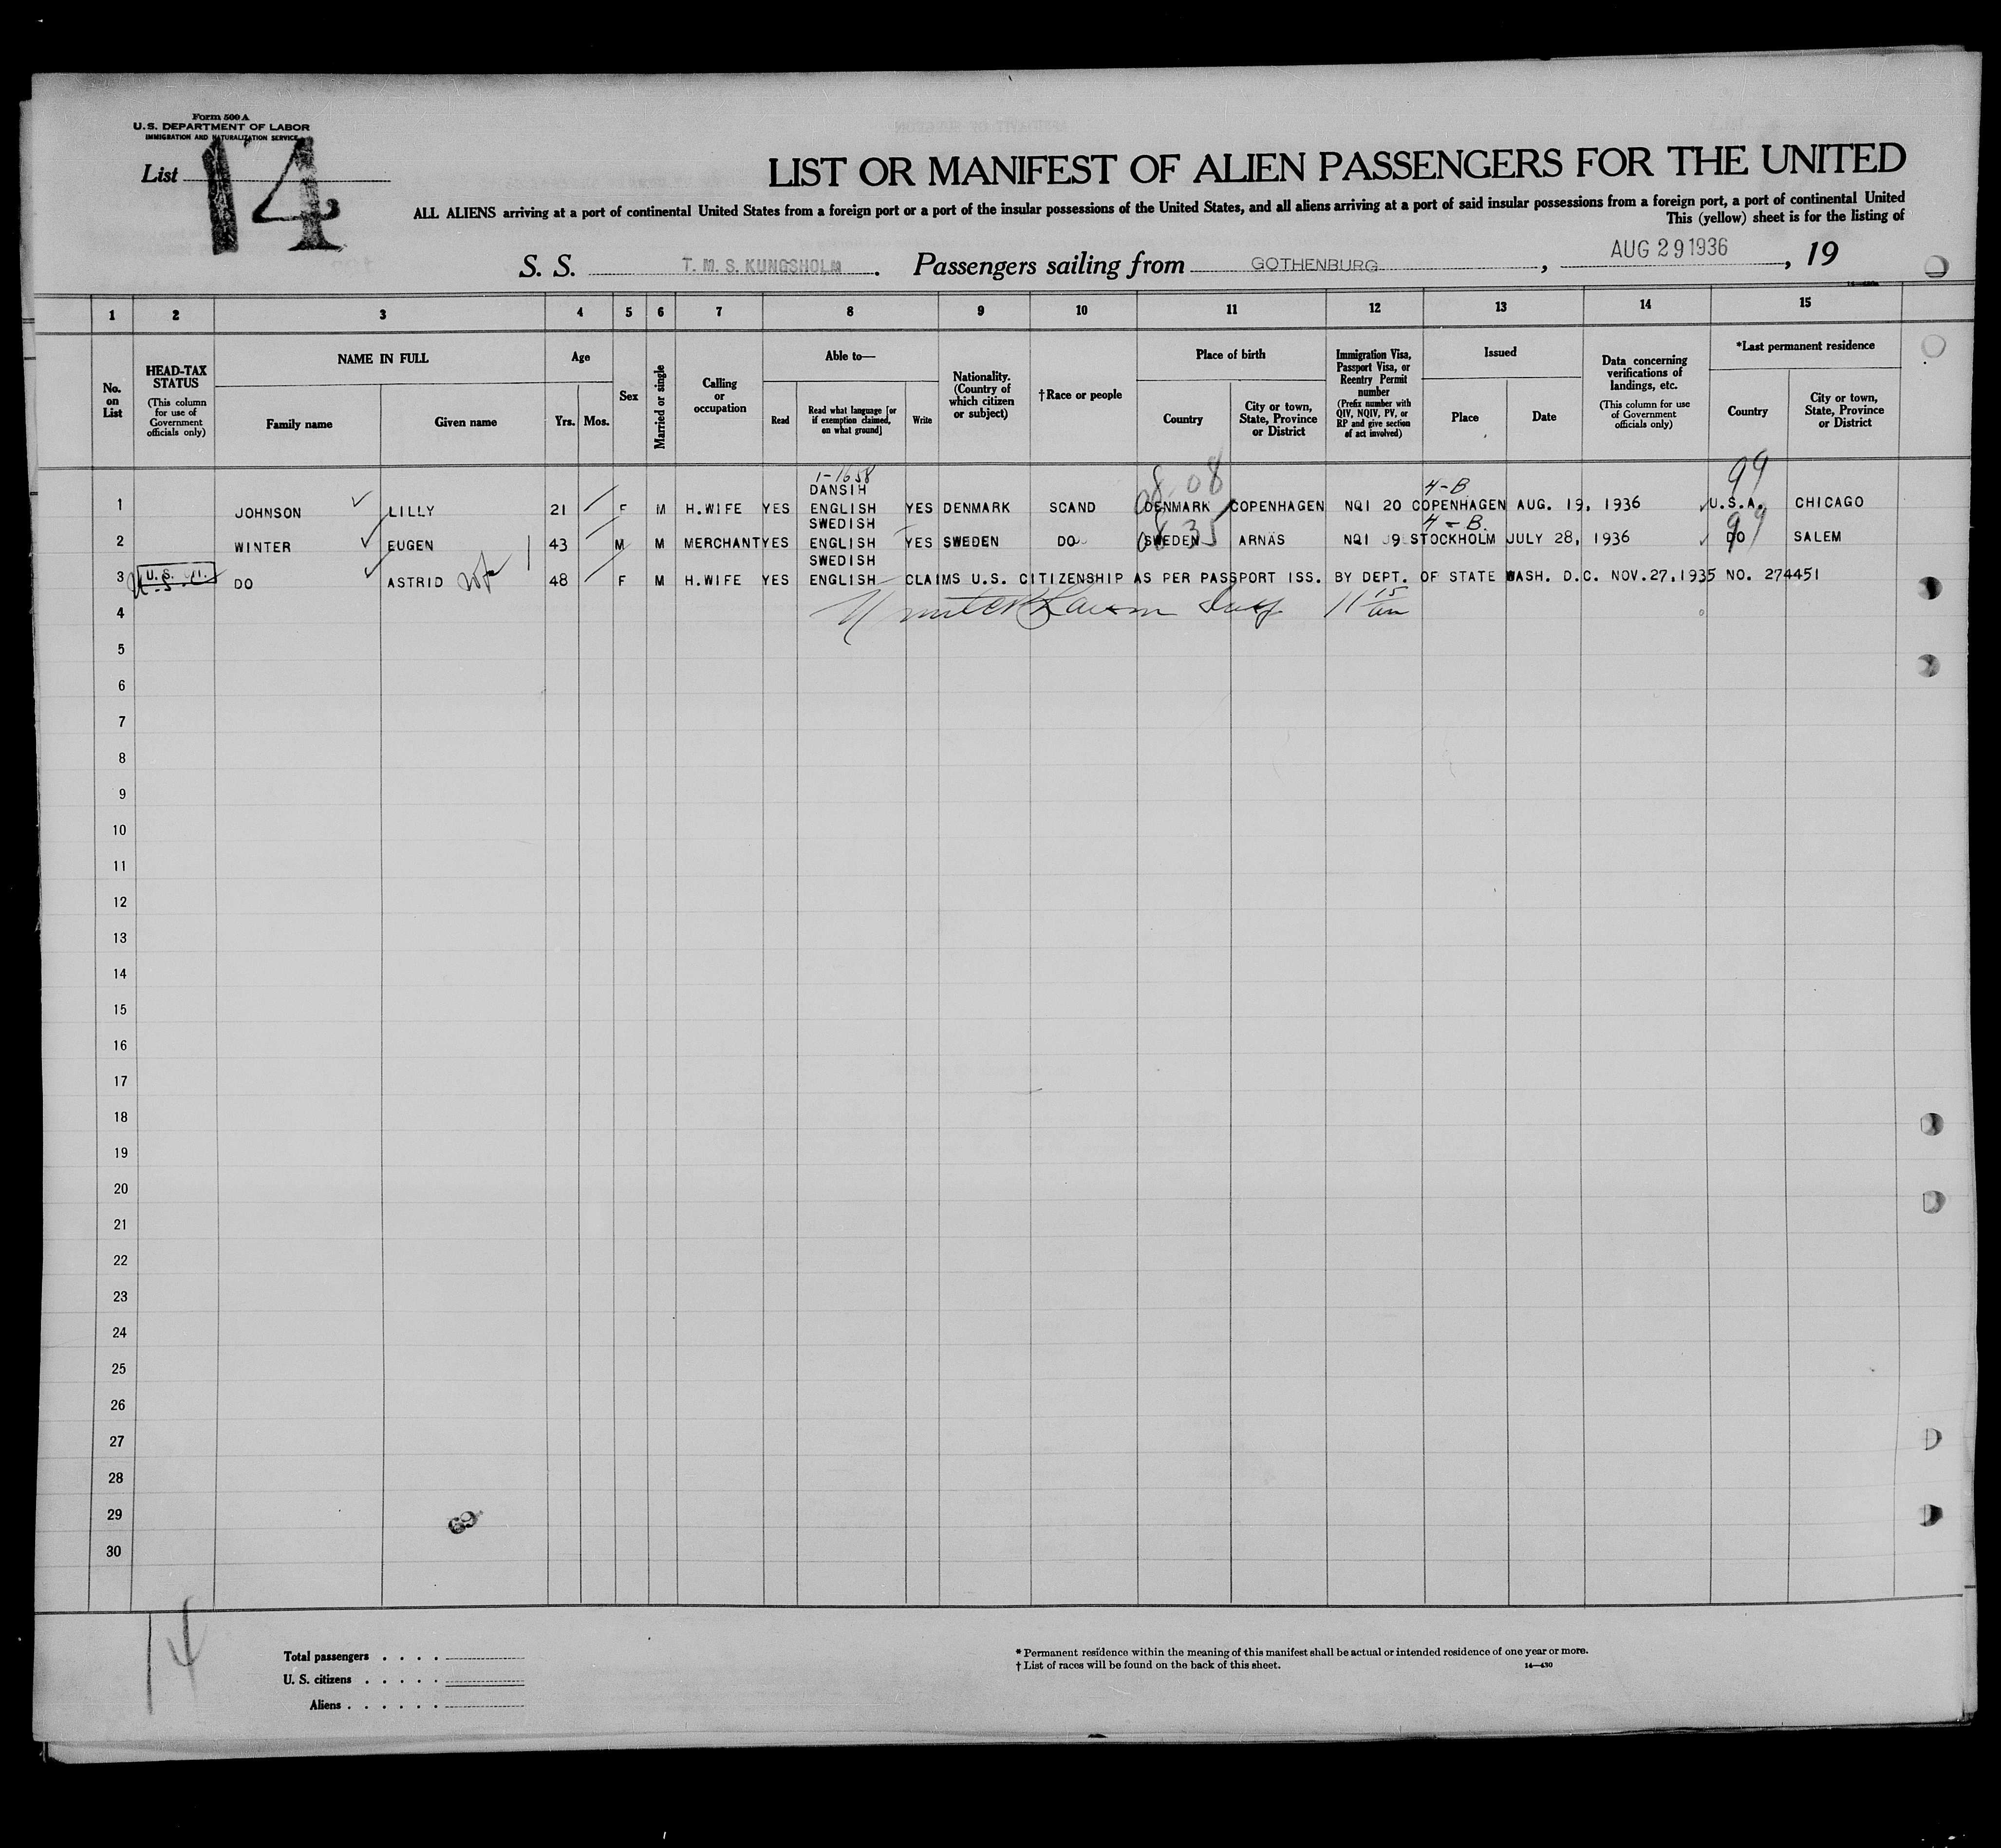 Form 500 A
U.S. DEPARTMENT OF LABOR
IMMIGRATION AND NATURALIZATION SERVICE
List 14
LIST OR MANIFEST OF ALIEN PASSENGERS FOR THE UNITED
ALL ALIENS arriving at a port of continental United States from a foreign port or a port of the insular possessions of the United States, and all aliens arriving at a port of said insular possessions from a foreign port, a port of continental United
This (yellow) sheet is for the listing of
S. S. T. M. S. KUNGSHOLM. Passengers sailing from GOTHENBURG, AUG 29 1936, 19
1 2 3 4 5 6 7 8 9 10 11 12 13 14 15
No. on List
HEAD-TAX STATUS
(This column for use of Government officials only)
NAME IN FULL
Family name
Given name
Age
Yrs. Mos.
Sex
Married or single
Calling or occupation
Able to—
Read
Read what language [or if exemption claimed, on what ground]
Write
Nationality. (Country of which citizen or subject)
†Race or people
Place of birth
Country
City or town, State, Province or District
Immigration Visa, Passport Visa, or Reentry Permit number
(Prefix number with QIV, NQIV, PV, or RP and give section of act involved)
Issued
Place
Date
Data concerning verifications of landings, etc.
(This column for use of Government officials only)
*Last permanent residence
Country
City or town, State, Province or District
1-1658 08 08 4-B 99
DANSIH
1 JOHNSON LILLY 21 F M H.WIFE YES ENGLISH YES DENMARK SCAND DENMARK COPENHAGEN NQI 20 COPENHAGEN AUG. 19, 1936 U.S.A. CHICAGO
SWEDISH 4-B.
2 WINTER EUGEN 43 M M MERCHANT YES ENGLISH YES SWEDEN DO SWEDEN ARNÄS NQI 9 STOCKHOLM JULY 28, 1936 DO SALEM
SWEDISH
3 U.S. DO ASTRID 48 F M H.WIFE YES ENGLISH CLAIMS U.S. CITIZENSHIP AS PER PASSPORT ISS. BY DEPT. OF STATE WASH. D.C. NOV.27,1935 NO. 274451
4 11 15 am
5
6
7
8
9
10
11
12
13
14
15
16
17
18
19
20
21
22
23
24
25
26
27
28
29
30
14
Total passengers . . . .
U. S. citizens . . . . .
Aliens . . . . . .
* Permanent residence within the meaning of this manifest shall be actual or intended residence of one year or more.
† List of races will be found on the back of this sheet. 14—430